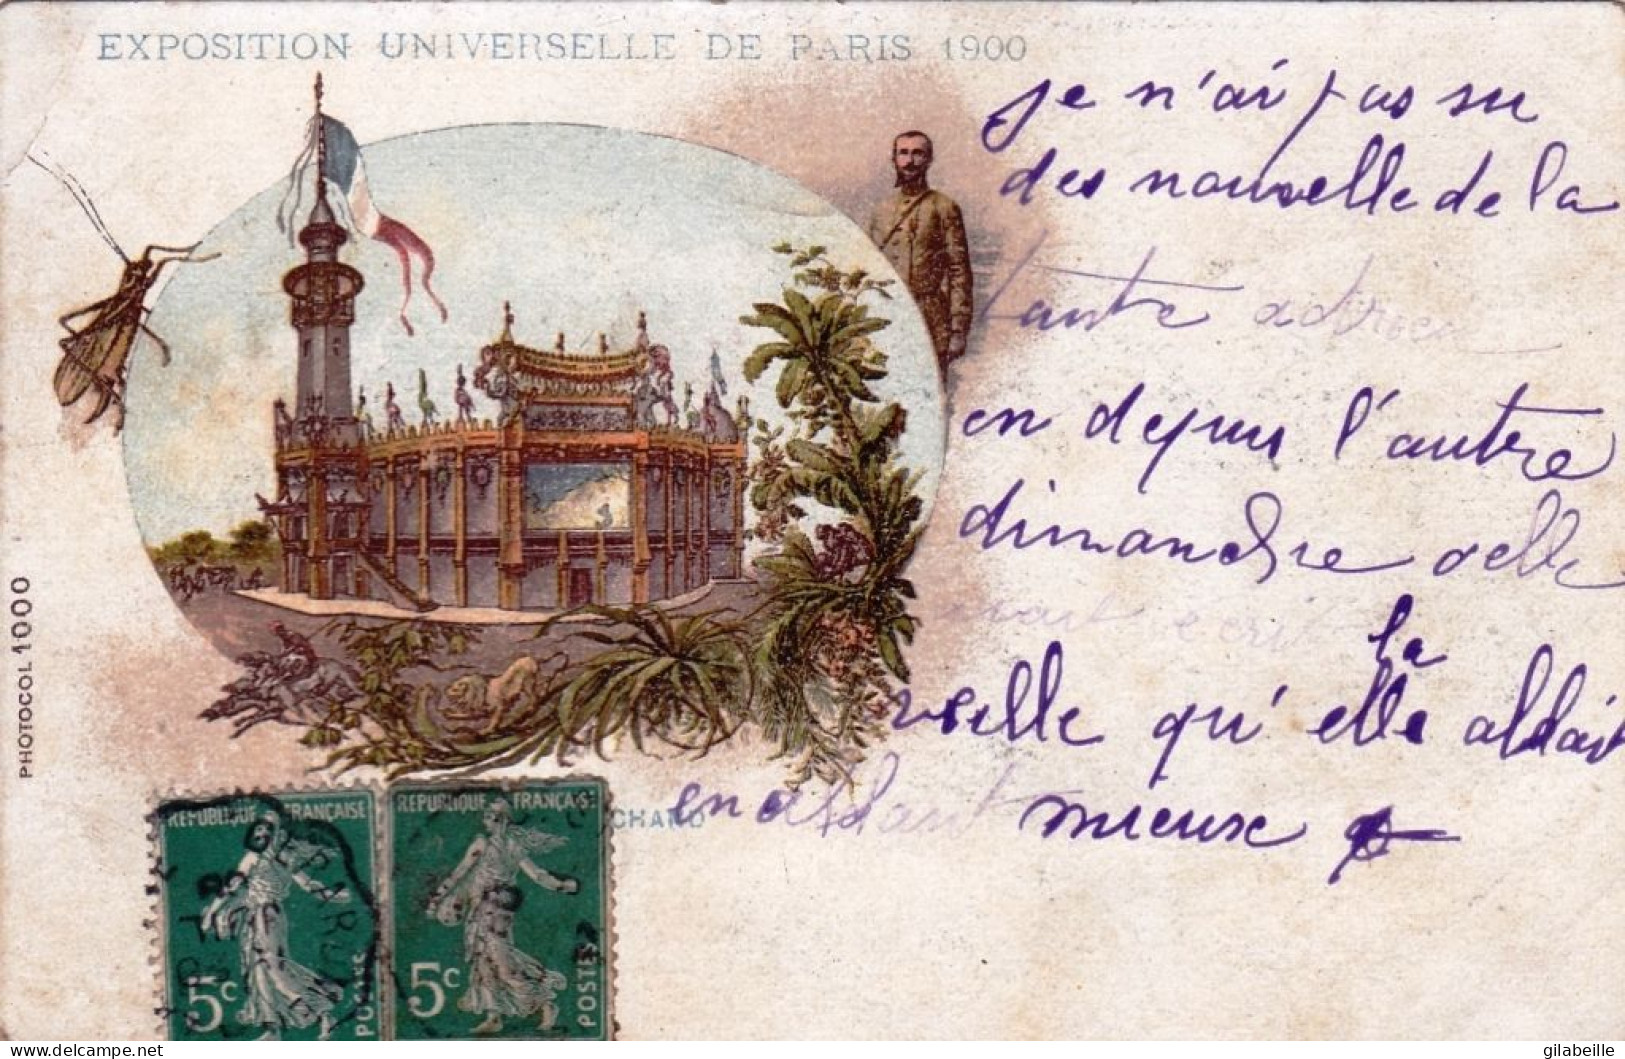 EXPOSITION UNIVERSELLE DE PARIS 1900
je n'ai pas su
des nouvelle de la
tante
en depuis l'autre
dimanche elle
avait ecrit
la
veille qu'elle alldait
en alldant mieux
PHOTOCOL 1000
CHAND
REPUBLIQUE FRANÇAISE
5c
POSTES
REPUBLIQUE FRANÇAISE
5c
POSTES
delcampe.net
gilabeille